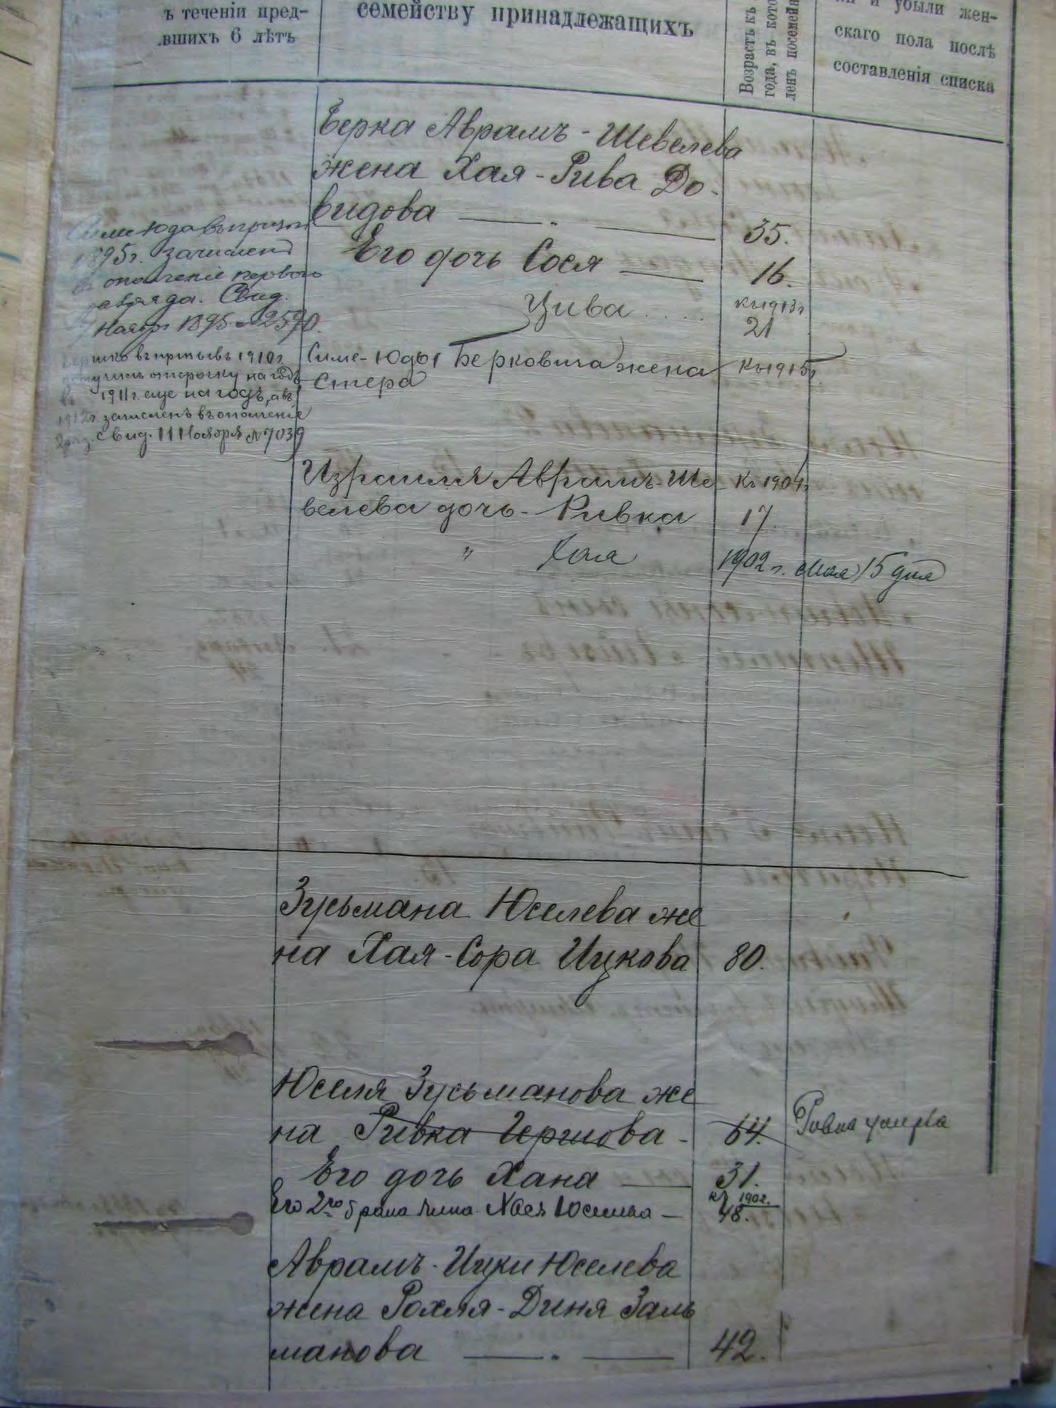 ъ теченіи пред-
вшихъ 6 лѣтъ
семейству принадлежащихъ
Возрастъ къ
года, въ кото
ленъ посемейн
и убыли жен-
скаго пола послѣ
составленія списка
Берка Аврамъ-Шевелева
жена Хая-Рива До-
видова 35.
Его дочь Сося 16.
Цива къ 1913 г
21
Симе-Юды Берковича жена къ 1915 г.
Стера
Симе Юда въ призыв
1895 г. зачислен
в ополченіе перваго
разряда. Свид.
Ноября 1895 №2590.
въ призывъ 1910 г
получилъ отсрочку на годъ
въ 1911 г еще на годъ, а въ
1912 г. зачисленъ въ ополченіе
2 раз. свид. 11 Ноября №7039
Израиля Аврамъ-Ше- Къ 1904 г.
велева дочь-Ривка 17
" Хая 1902 г. Мая 15 дня
Зусьмана Юселева же
на Хая-Сора Ицкова 80.
Юселя Зусьманова же
на Ривка Гершова- 64. Ривка умерла
Его дочь Хана 31.
къ 1902 г.
Его 2го брака жена Юселева 48.
Аврамъ-Ицки Юселева
жена Рохля-Диня Заль
манова 42.